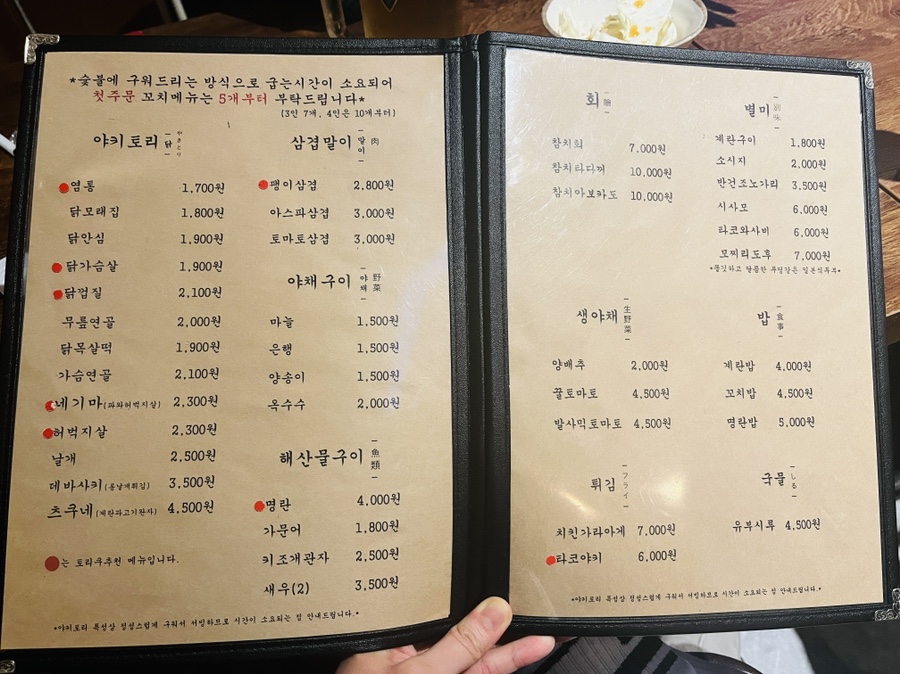 *숯불에 구워드리는 방식으로 굽는시간이 소요되어
첫주문 꼬치메뉴는 5개부터 부탁드립니다*
(3인 7개, 4인은 10개부터)
야키토리 닭 やきとり
염통 1,700원
닭모래집 1,800원
닭안심 1,900원
닭가슴살 1,900원
닭껍질 2,100원
무릎연골 2,000원
닭목살떡 1,900원
가슴연골 2,100원
네기마(파와허벅지살) 2,300원
허벅지살 2,300원
날개 2,500원
데바사키(통날개튀김) 3,500원
츠쿠네(계란과고기완자) 4,500원
는 토리쿠추천 메뉴입니다.
삼겹말이 말이 肉
팽이삼겹 2,800원
아스파삼겹 3,000원
토마토삼겹 3,000원
야채구이 야채 野菜
마늘 1,500원
은행 1,500원
양송이 1,500원
옥수수 2,000원
해산물구이 魚類
명란 4,000원
가문어 1,800원
키조개관자 2,500원
새우(2) 3,500원
*야키토리 특성상 정성스럽게 구워서 서빙하므로 시간이 소요되는 점 안내드립니다.*
회 膾
참치회 7,000원
참치타다끼 10,000원
참치아보카도 10,000원
생야채 生野菜
양배추 2,000원
꿀토마토 4,500원
발사믹토마토 4,500원
튀김 フライ
치킨가라아게 7,000원
타코야키 6,000원
별미 別味
계란구이 1,800원
소시지 2,000원
반건조노가리 3,500원
시사모 6,000원
타코와사비 6,000원
모찌리도후 7,000원
*쫄깃하고 달콤한 푸딩같은 일본식두부*
밥 食事
계란밥 4,000원
꼬치밥 4,500원
명란밥 5,000원
국물 しる
유부시루 4,500원
*야키토리 특성상 정성스럽게 구워서 서빙하므로 시간이 소요되는 점 안내드립니다.*